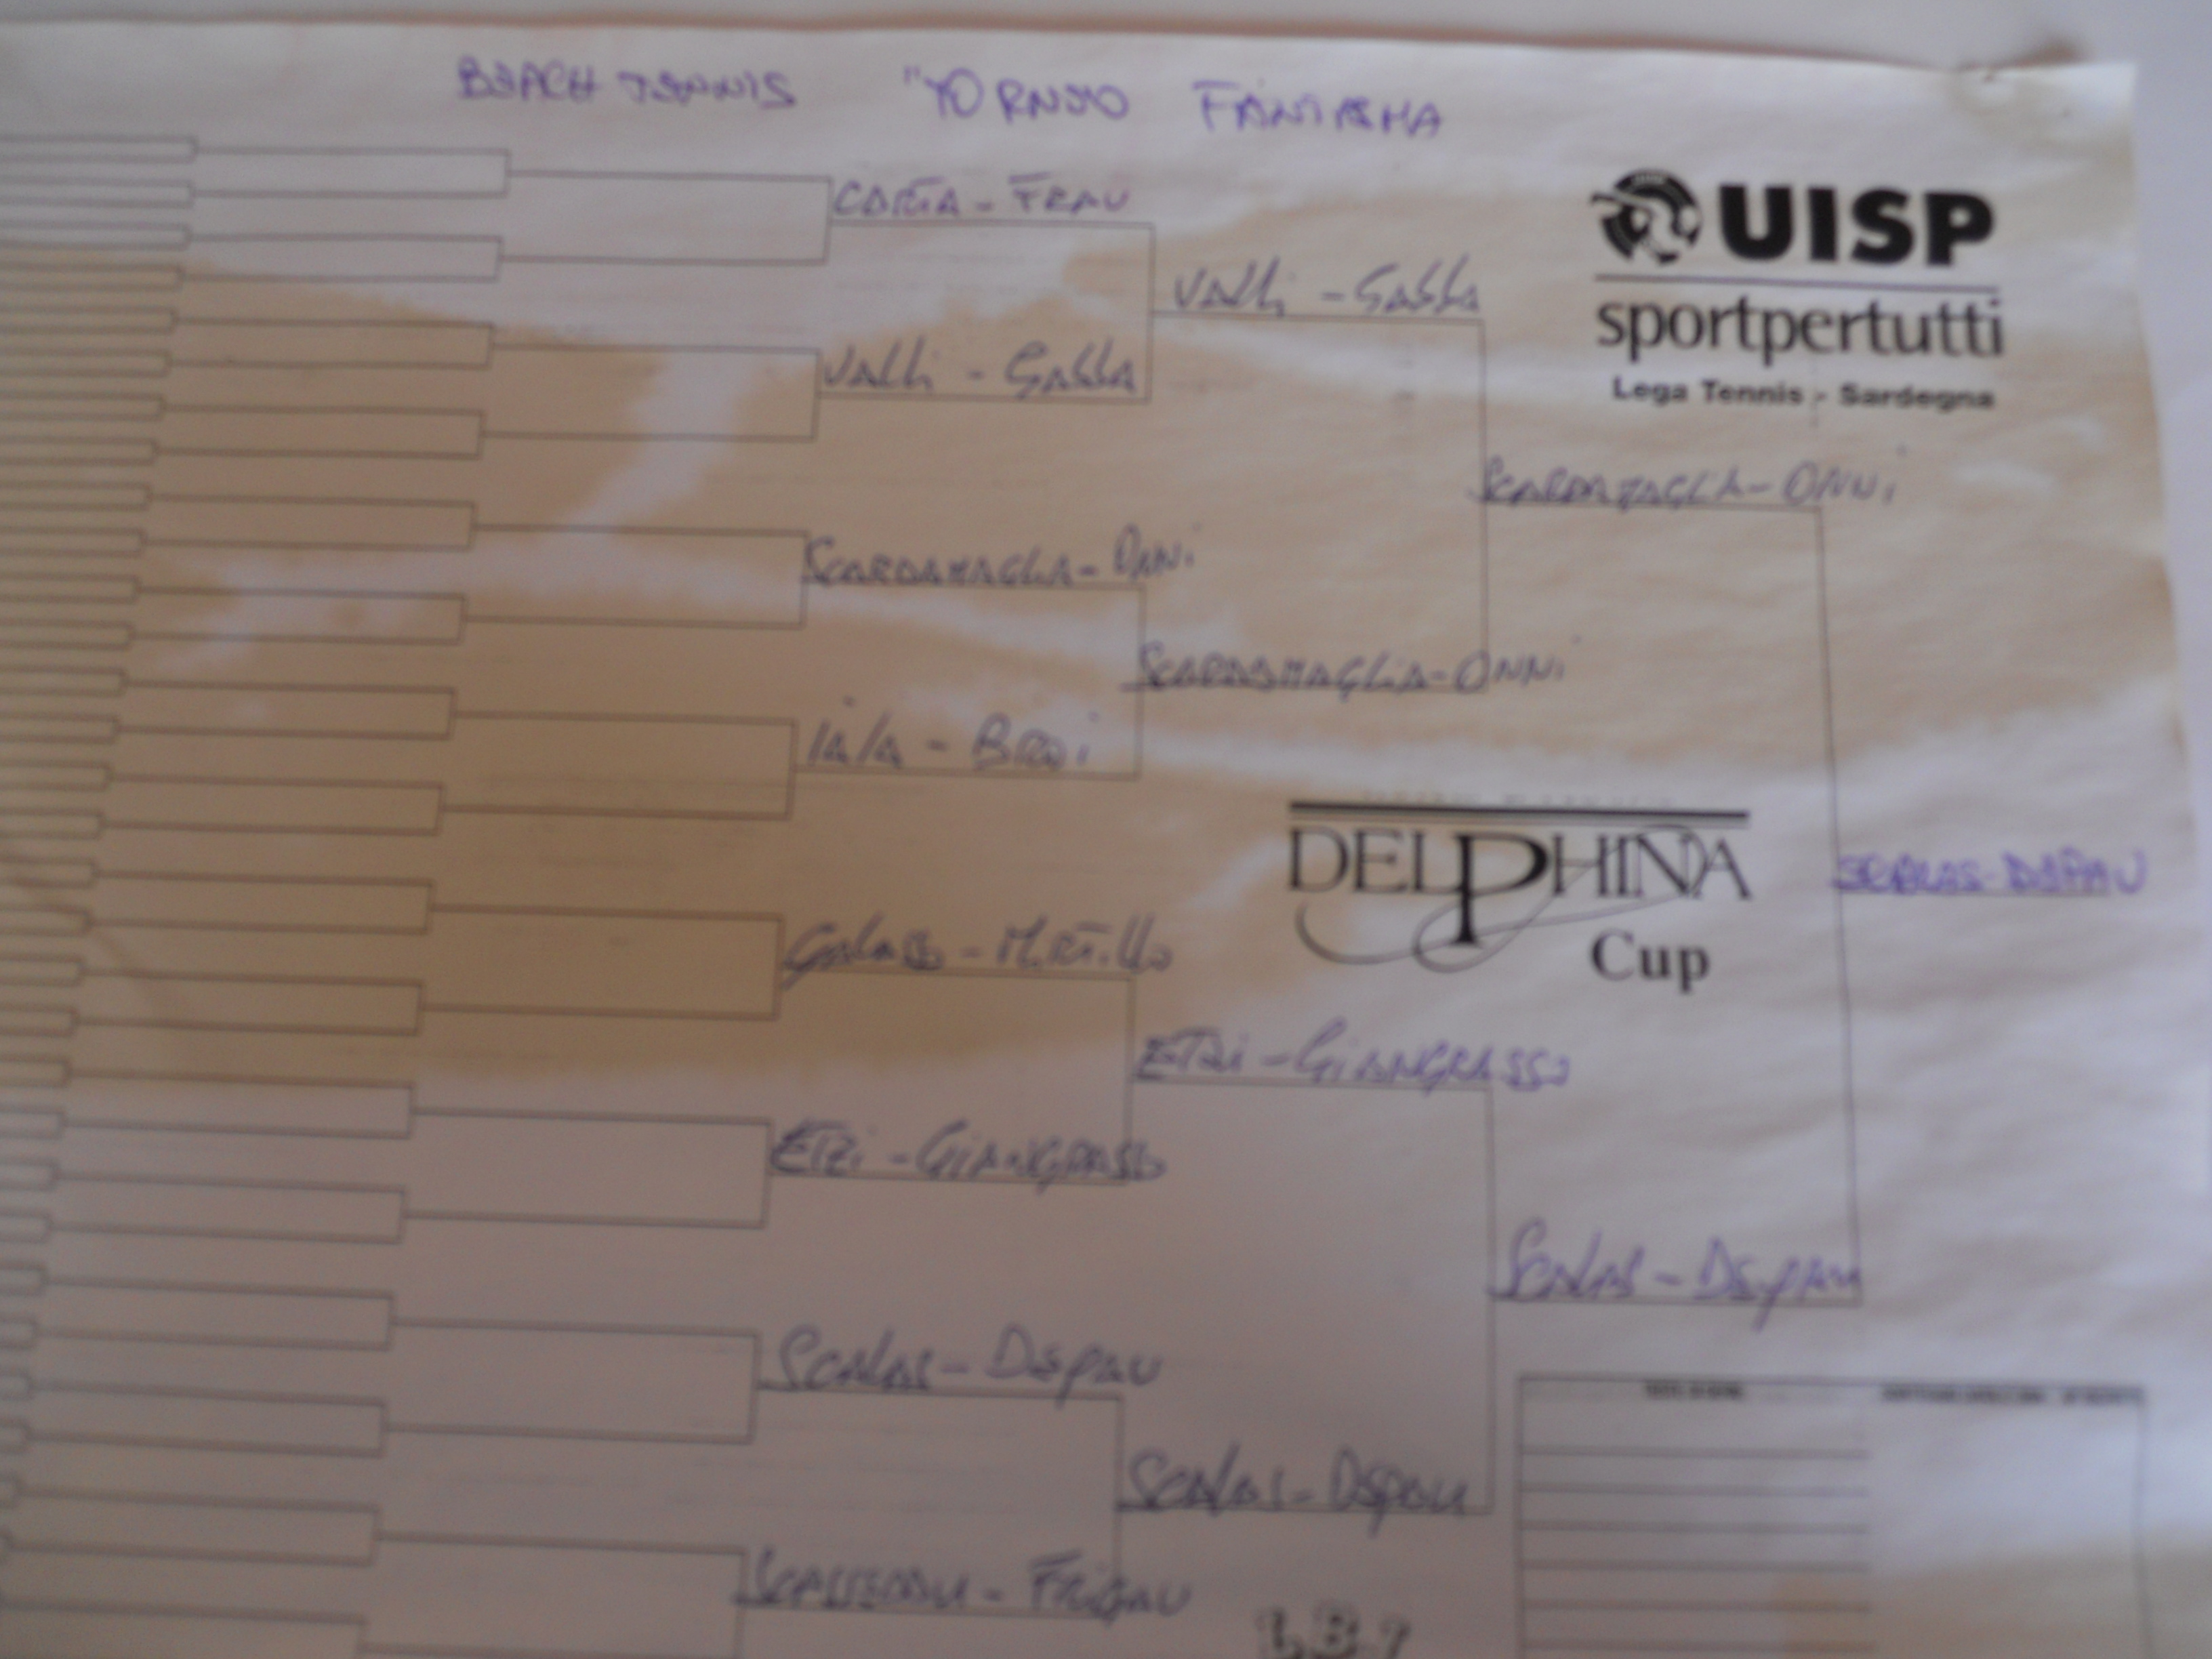 BEACH TENNIS "TORNEO FANTASMA
CARTA - FRAU
UISP
sportpertutti
Lega Tennis - Sardegna
VALLI - GABBA
VALLI - GABBA
SCARDAMAGLIA - ONNI
SCARDAMAGLIA - ONNI
SCARDAMAGLIA - ONNI
IAIA - BROI
DELPHINA
Cup
SCALAS - DEPAU
GALASSO - MIRTILLO
ETZI - GIANGRASSO
ETZI - GIANGRASSO
SCALAS - DEPAU
SCALAS - DEPAU
SCALAS - DEPAU
FRIGAU